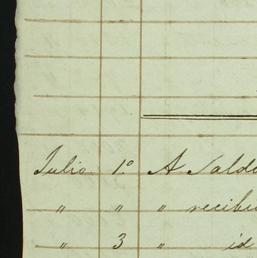 Julio 1.º A Sald
" " " recibi
" 3 " id